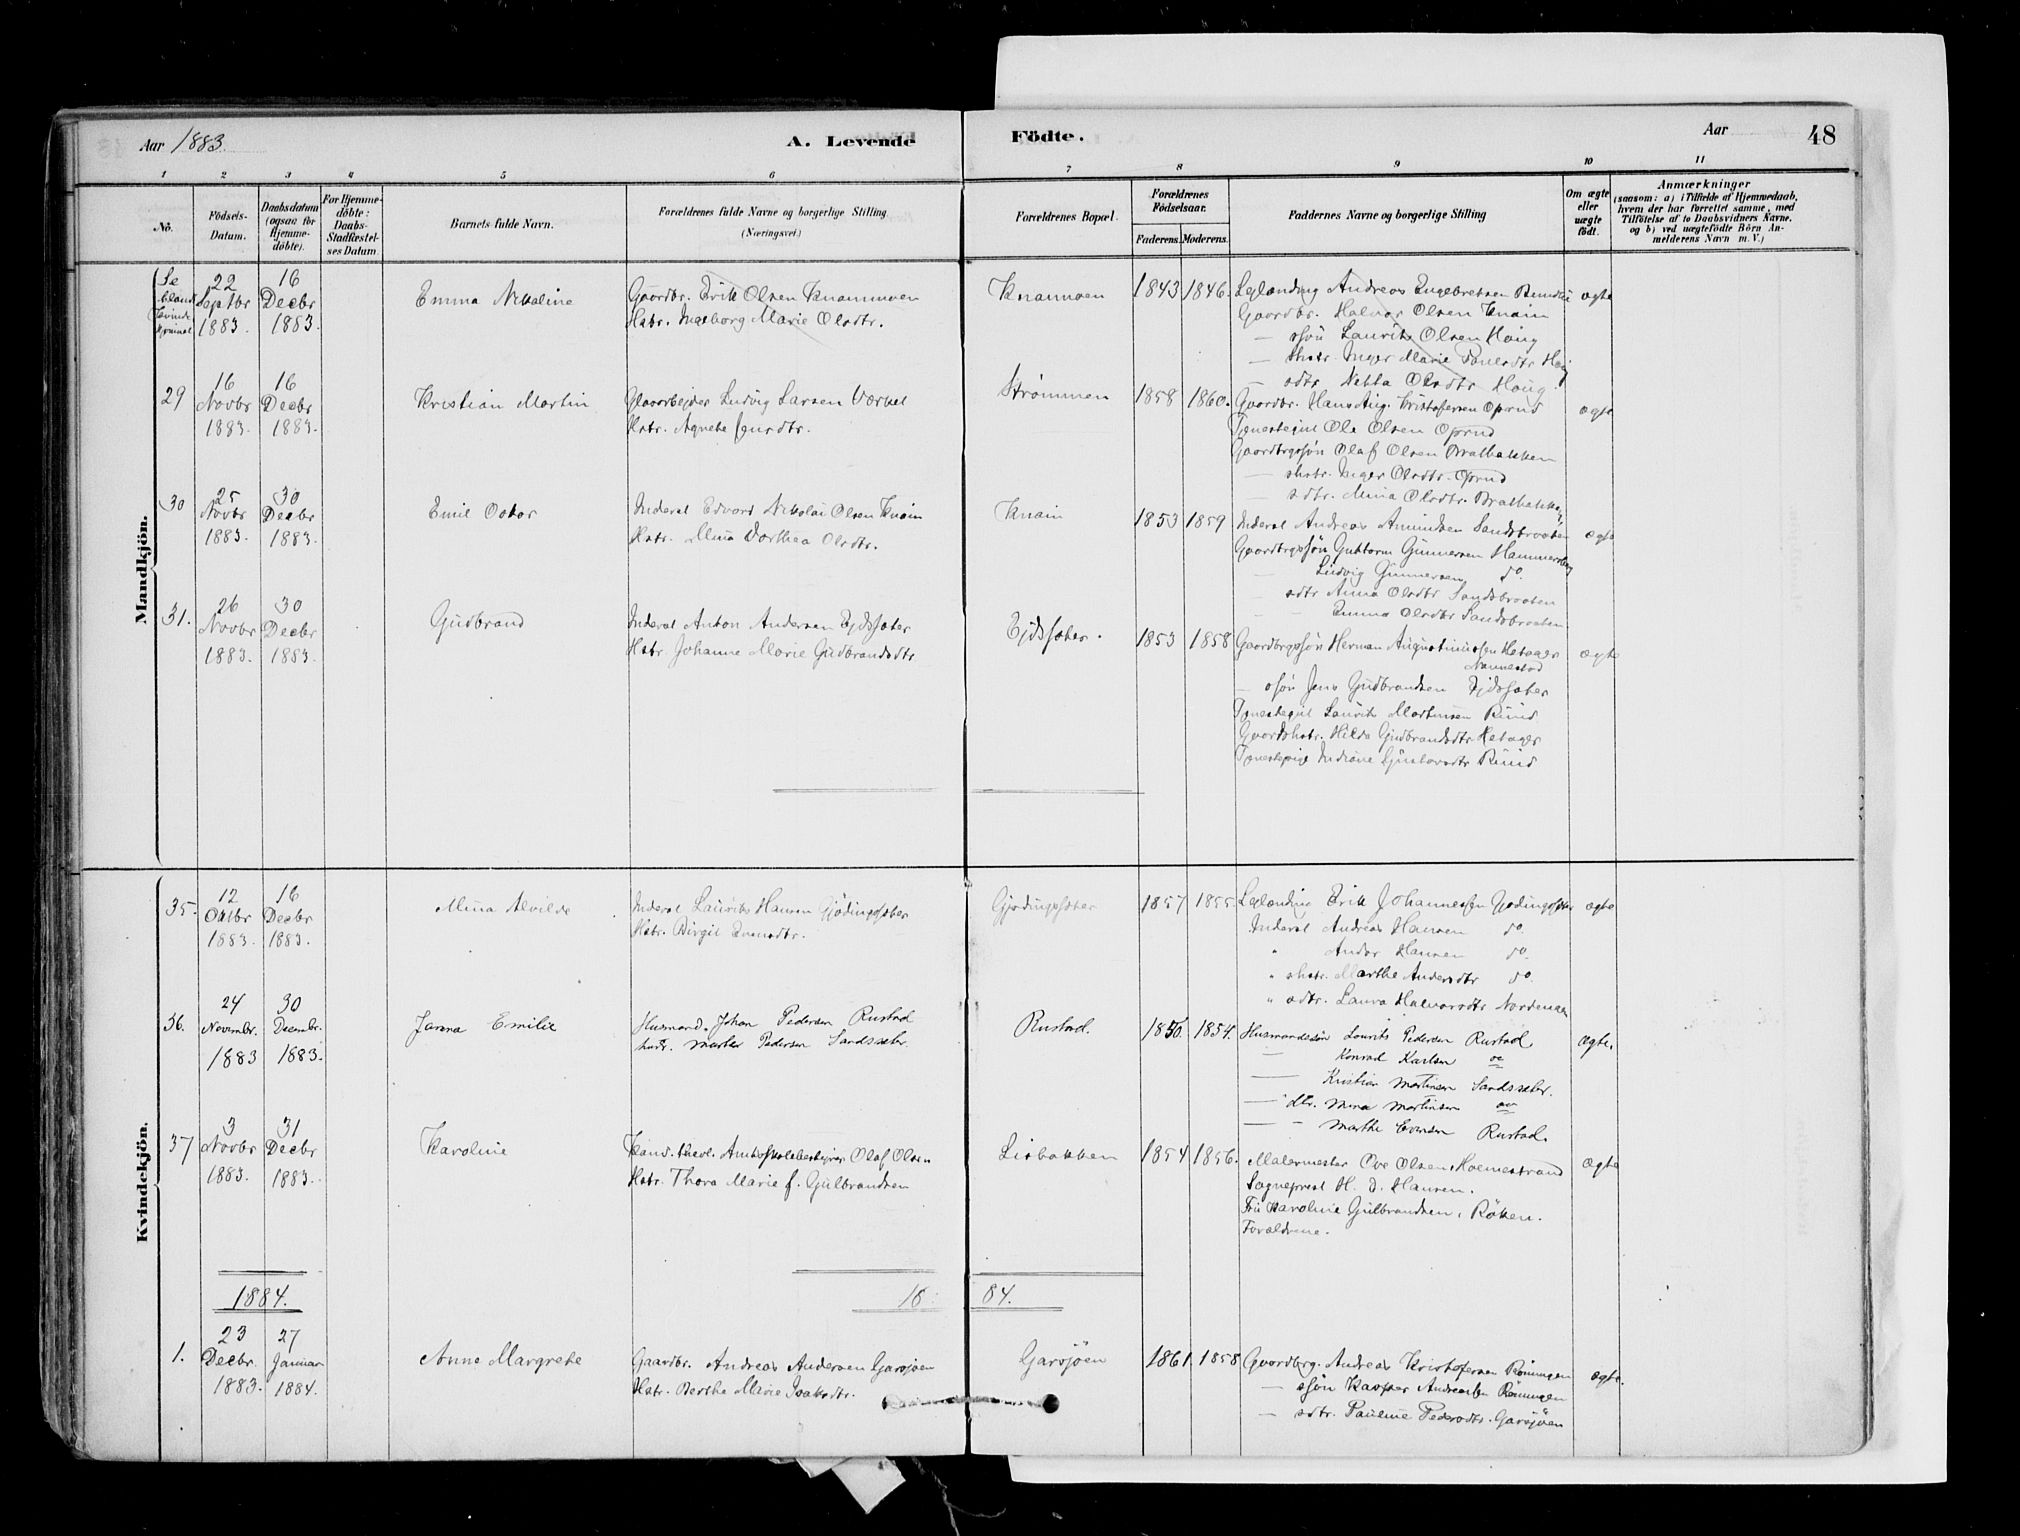 Aar 1883.
A. Levende Födte.
Aar
48
1 2 3 4 5 6 7 8 9 10 11
No.
Födsels-Datum.
Daabsdatum (ogsaa for Hjemme-döbte).
For Hjemme-döbte: Daabs-Stadfæstel-ses Datum
Barnets fulde Navn.
Forældrenes fulde Navne og borgerlige Stilling (Næringsvei.)
Forældrenes Bopæl.
Forældrenes Födselsaar.
Faderens. Moderens.
Faddernes Navne og borgerlige Stilling
Om ægte eller uægte födt.
Anmærkninger
(saasom: a) i Tilfælde af Hjemmedaab, hvem der har forrettet samme, med Tilföielse af to Daabsvidners Navne, og b) ved uægtefödte Börn An-melderens Navn m. V.)
Mandkjön.
Se blandt
22 Septbr 1883.
16 Decbr 1883.
Emma Nikoline
Gaardbr. Erik Olsen Knaimoen
Hstr. Ingeborg Marie Olsdtr.
Knaimoen
1843 1846.
Lægdsmd Andreas Engebretsen
Gaardbr. Halvor Olsen Knain
— ssøn Laurits Olsen Haug
— shstr. Inger Marie Haug
— sdtr Netta Olsdtr Haug.
ægte
29
16 Novbr 1883.
16 Decbr 1883.
Kristian Martin
Ludvig Larsen Værket
Hstr. Agnete Jensdtr.
Strømmen
1858 1860.
Gaardbr. Hans Aug. Kristofersen Oprud
Tjenestegut Ole Olsen Oprud
Gaardbrgssøn Olaf Olsen Brathakken
— shstr. Inger Olsdtr. Oprud
— sdtr. Mina Olsdtr. Brathakken
ægte
30
25 Novbr 1883.
30 Decbr 1883.
Emil Oskar
Inderst Edvard Nikolai Olsen Knain
Hstr. Mina Dorthea Olsdtr.
Knain
1853 1859
Inderst Andreas Amundsen Sandsbraaten
Gaardbrgssøn Guttorm Gunnersen Hammerstad
— Ludvig Gunnersen do.
— sdtr Anna Olsdtr Sandsbraaten
— Emma Olsdtr Sandsbraaten
ægte
31.
26 Novbr 1883.
30 Decbr 1883.
Gudbrand
Inderst Anton Andersen Ejdssæter
Hstr. Johanne Marie Gudbrandsdtr
Ejdssæter.
1853 1858
Gaardbrgssøn Herman Augustinussen Hetager Nannestad
— ssøn Jens Gudbrandsen Ejdssæter
Tjenestegut Laurits Martinsen Ruud
Gaardshstr. Hilda Gudbrandsdtr Hetager
Tjenestepige Indiane Gustavsdtr Ruud
ægte
Kvindekjön.
35.
12 Oktbr 1883.
16 Decbr 1883.
Mina Alvilde
Inderst Laurits Hansen Gjødingssæter
Hstr. Birgit Evensdtr.
Gjødingssæter
1857 1855.
Lægdsmd Erik Johannessen Gjødingssæter
Inderst Andreas Hansen do.
" Anders Hansen do.
" shstr. Marthe Andersdtr do.
" sdtr. Laura Halvorsdtr Nordengen
ægte
36.
24 Novembr. 1883
30 Decembr. 1883.
Janna Emilie
Husmand. Johan Pedersen Rustad
hustr. Marthe Pedersen Sandssæter.
Rustad.
1850. 1854.
Husmandssøn Lourits Pedersen Rustad
— Konrad Karlsen do
— Kristian Martinsen Sandssæter.
— dtr. Mina Martinsen do
— Marthe Evensen Rustad.
ægte.
37
3 Novbr 1883.
31 Decbr 1883.
Karoline
Kand. theol. Amtsskolebestyrer Olaf Olsen
Hstr. Thora Marie f. Gulbrandsen
Lisbakken
1854 1856.
Malermester Ove Olsen, Holmestrand
Sogneprest H. D. Hansen.
Fru Karoline Gulbrandsen, Röken.
Forældrene.
ægte
1884.
18 84.
1.
23 Decbr. 1883.
27 Januar 1884.
Anne Margrete
Gaardbr. Andreas Andersen Garsjøen
Hstr. Berthe Marie Isaksdtr.
Garsjöen
1861. 1858
Gaardbrg. Andreas Kristofersen Röiningen
— ssøn Kasper Andreassen Röiningen
— sdtr. Pauline Pedersdtr. Garsjöen
ægte.